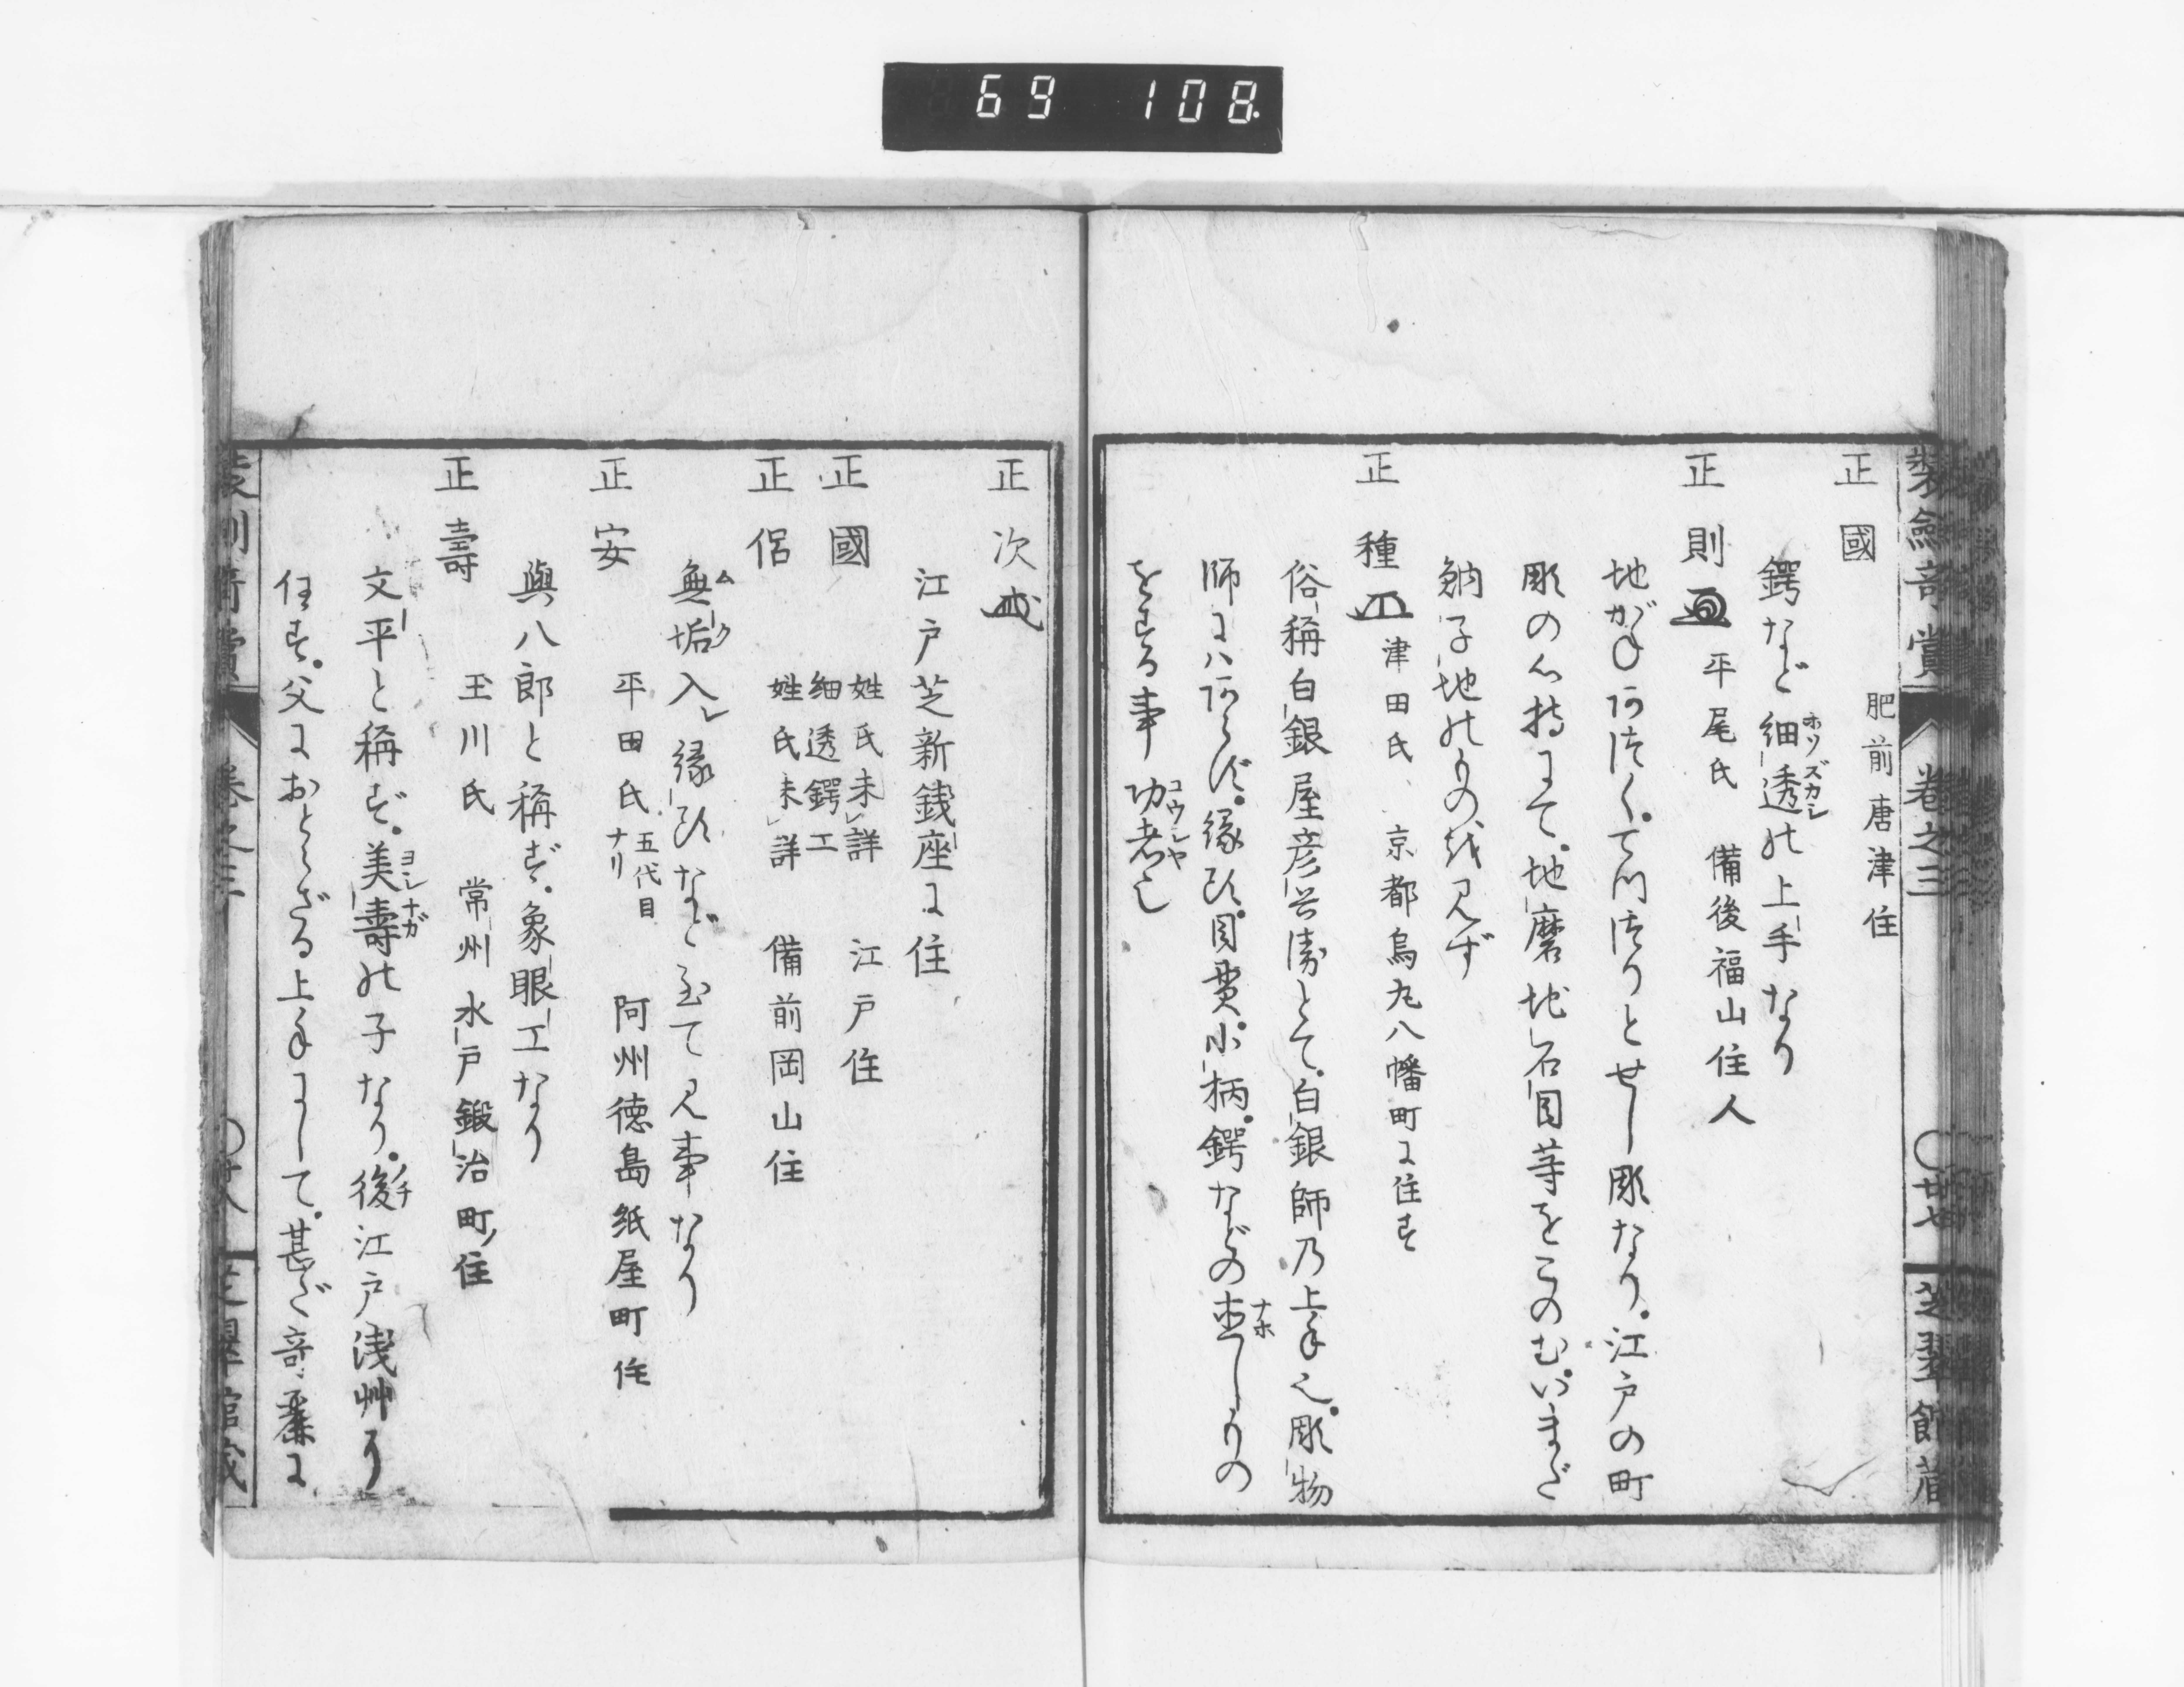 69 108
装劔竒賞 巻之三 〇廿七 芝翠館蔵
正國 肥前唐津住
鍔など細透の上手なり
ホソズカシ
正則 平尾氏 備後福山住人
地がね
とせし彫なり。江戸の町
彫の心持にて。地磨地石目等をこのむ。いまだ
魶子地のものを見ず
正種 津田氏、京都烏丸八幡町に住す
俗稱白銀屋彦兵衛とて。白銀師乃上手也。彫物
師にはあらず。縁頭。目貫。小柄。鍔などの直しもの
ナホ
をする事功者也
コウシヤ
正次
江戸芝新銭座に住
正國 姓氏未詳 江戸住
細透鍔工
正侶 姓氏未詳 備前岡山住
無垢入縁頭など至て見事なり
ムク
正安 平田氏 五代目ナリ 阿州徳島紙屋町住
與八郎と稱ず。象眼工なり
正壽 玉川氏 常州水戸鍛治町ノ住
文平と稱ず。美壽の子なり。後江戸浅艸に
ヨシナガ
ノチ
住す。父におとらざる上手にして。甚だ竒麗に
巻之三 〇廿八